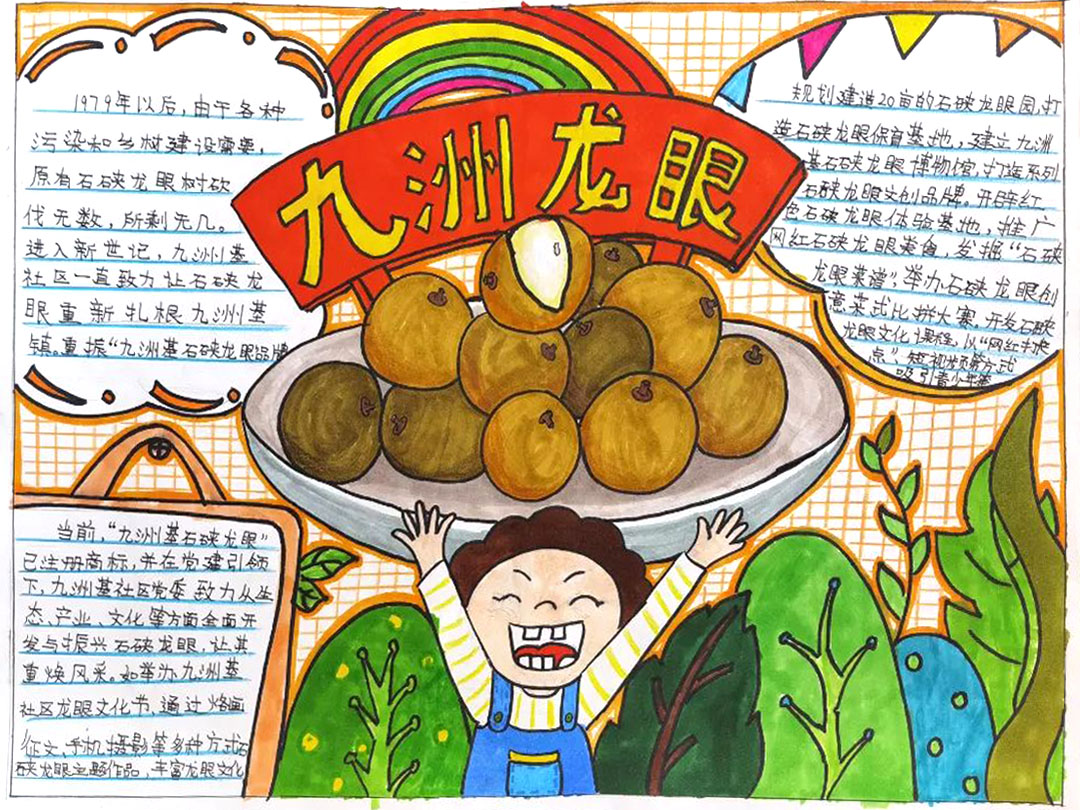 九洲龙眼
1979年以后，由于各种
污染和乡村建设需要，
原有石硖龙眼树砍
伐无数，所剩无几。
进入新世记，九洲基
社区一直致力让石硖龙
眼重新扎根九洲基
镇。重振“九洲基石硖龙眼品牌
规划建造20亩的石硖龙眼园，打
造石硖龙眼保育基地，建立九洲
基石硖龙眼博物馆，打造系列
石硖龙眼文创品牌。开辟红
色石硖龙眼体验基地，推广
网红石硖龙眼美食，发掘“石硖
龙眼菜谱”，举办石硖龙眼创
意菜式比拼大赛。开发石硖
龙眼文化课程，以“网红打卡
点”、短视频等方式
吸引青少年等
当前，“九洲基石硖龙眼”
已注册商标，并在党建引领
下，九洲基社区党委致力从生
态、产业、文化等方面全面开
发与振兴石硖龙眼，让其
重焕风采。如举办九洲基
社区龙眼文化节，通过烙画
征文、手机摄影等多种方式石
硖龙眼主题作品，丰富龙眼文化